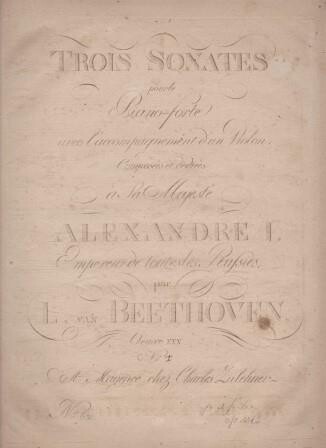 TROIS SONATES
pour le
Piano-forte
avec l'accompagnement d'un Violon,
Composées et dediées
à Sa Majesté
ALEXANDRE I.
Empereur de toutes les Russies,
par
L. van BEETHOVEN.
Oeuvre XXX
A Mayence chez Charles Zulehner